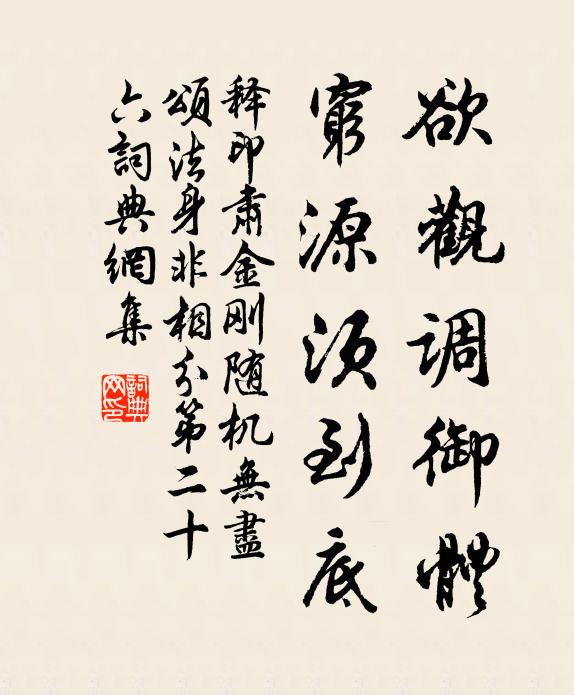 欲觀調御體
窮源須到底
释印肅金刚随机無盡
頌法身非相分第二十
六詞典網集
詞典
网印